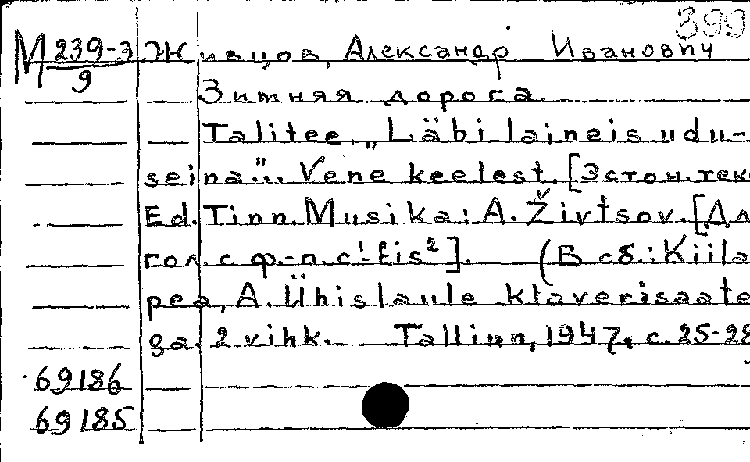 399
М 239-3 Живцов, Александр Иванович
9
Зимняя дорога
Talitee. „Läbi laineis udu-
seina"... Vene keelest. [Эстон. текс
Ed. Tinn. Musika: A. Živtsov. [Дл
гол. с ф.-п. c¹-fis²]. (В сб.: Kiila
pea, A. Ühislaule klaverisaate
ga. 2 vihk. Tallinn, 1947, с. 25-28
69186
69185